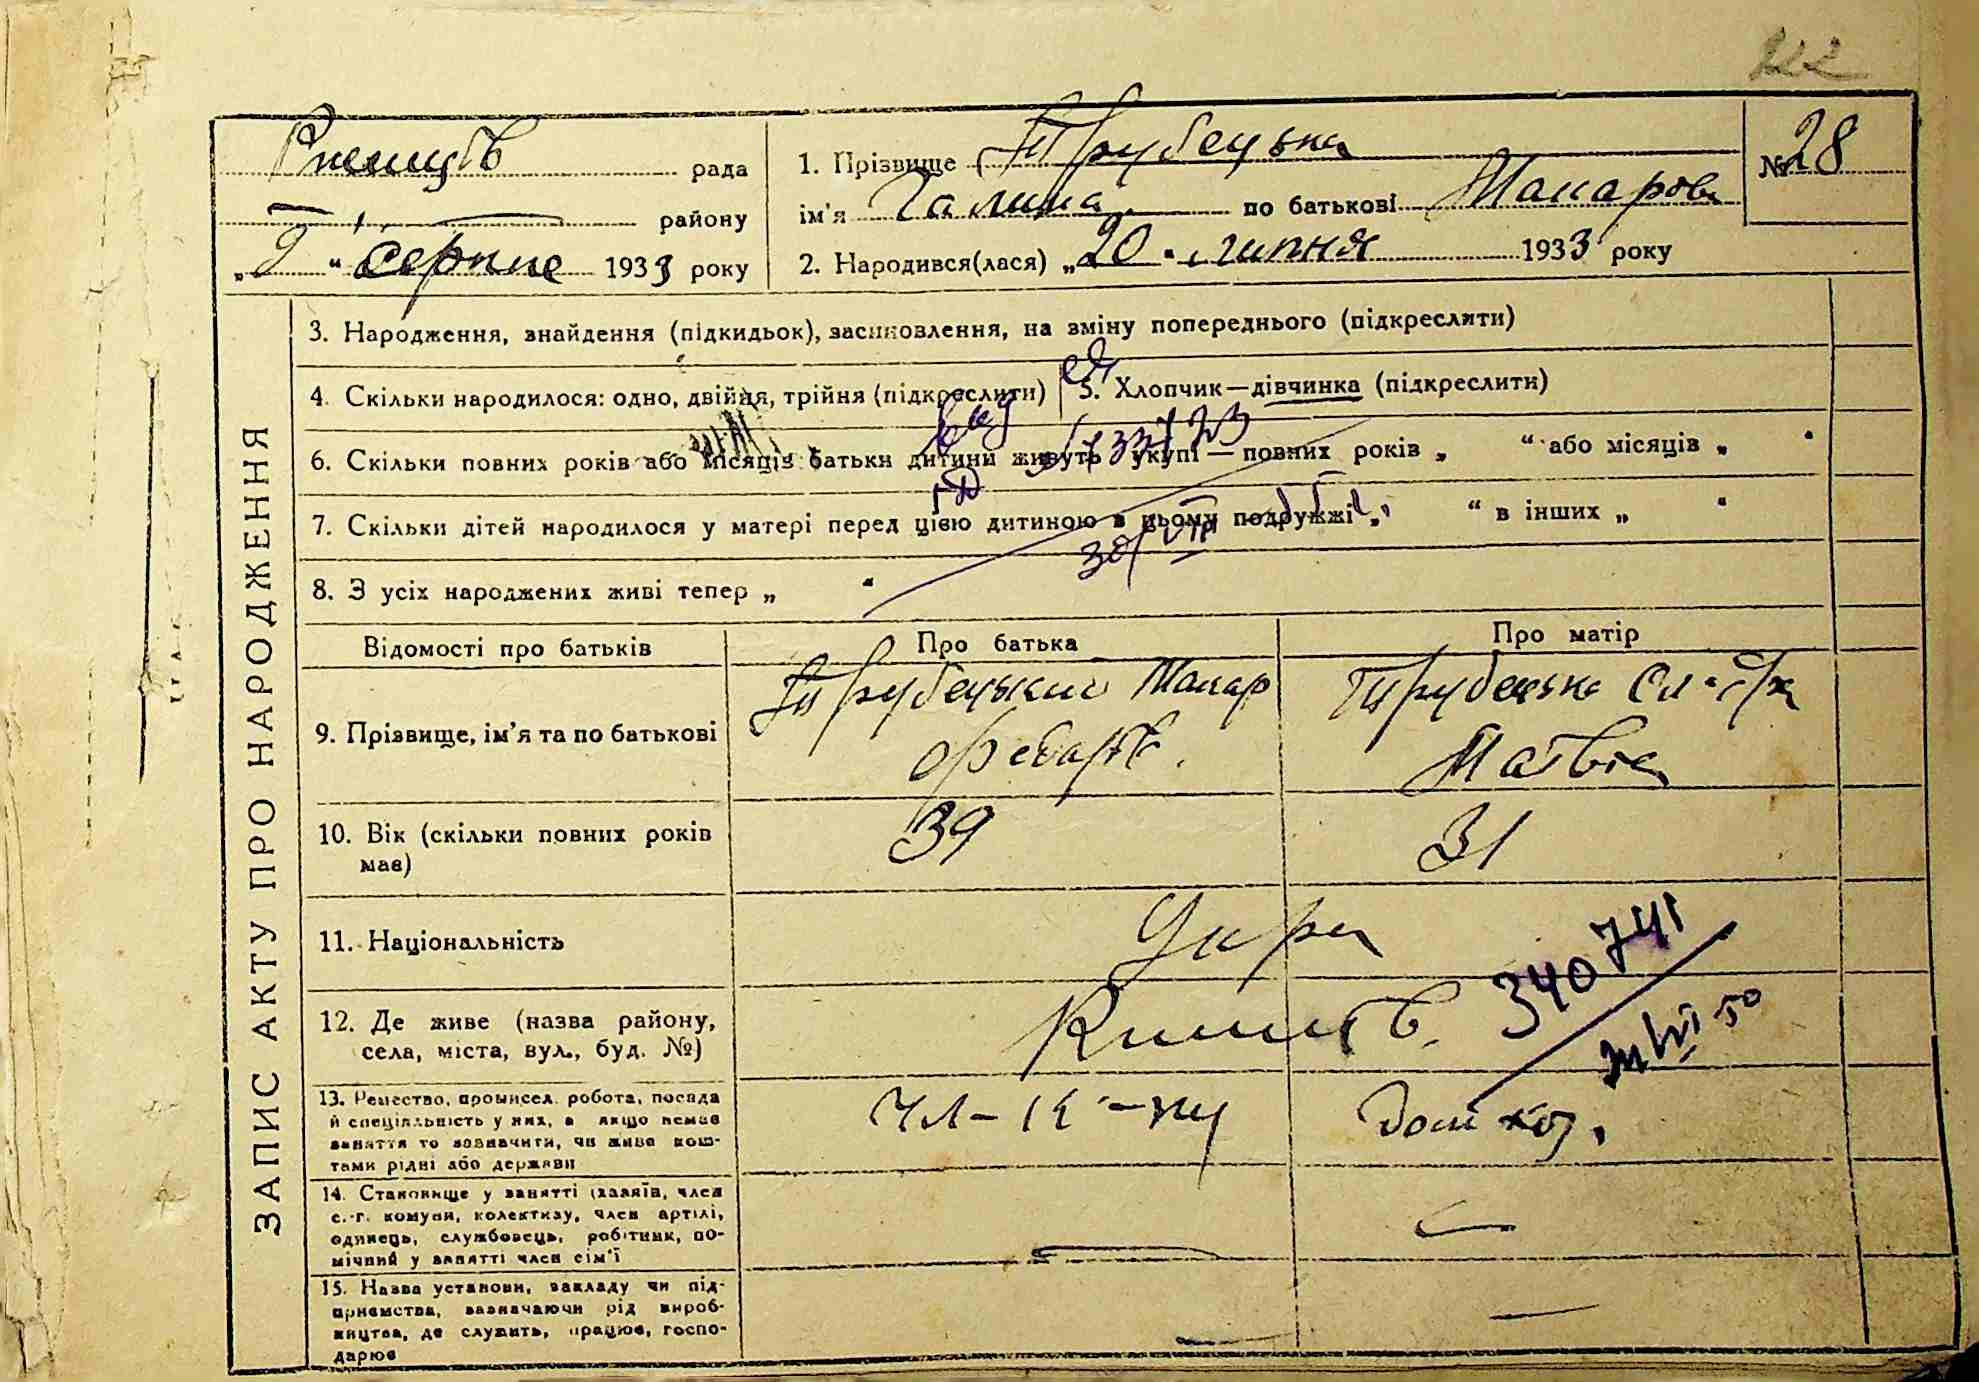 222
рада
району
„ “ серпня 1933 року
1. Прізвище Трубецька
ім'я Галина по батькові Макаров
№ 28
2. Народився(лася) „20“ липня 1933 року
ЗАПИС АКТУ ПРО НАРОДЖЕННЯ
3. Народження, знайдення (підкидьок), засиновлення, на зміну попереднього (підкреслити)
4. Скільки народилося: одно, двійня, трійня (підкреслити)
5. Хлопчик—дівчинка (підкреслити)
6. Скільки повних років або місяців батьки дитини живуть укупі — повних років „ “ або місяців „ “
7. Скільки дітей народилося у матері перед цією дитиною в цьому подружжі „ “ в інших „ “
8. З усіх народжених живі тепер „ “
Відомості про батьків
Про батька
Про матір
9. Прізвище, ім'я та по батькові
Трубецький Макар
Трубецька
10. Вік (скільки повних років
має)
39
31
11. Національність
Укр
12. Де живе (назва району,
села, міста, вул., буд. №)
340741
50
13. Ремество, промисел, робота, посада
й спеціяльність у них, а якщо немає
заняття то зазначити, чи живе кош-
тами рідні або держави
чл-к-пу
дом хоз.
14. Становище у занятті (хазяїн, член
с.-г. комуни, колективу, член артілі,
одинець, службовець, робітник, по-
мічний у занятті член сім'ї
15. Назва установи, закладу чи під-
приємства, зазначаючи рід вироб-
ництва, де служить, працює, госпо-
дарює